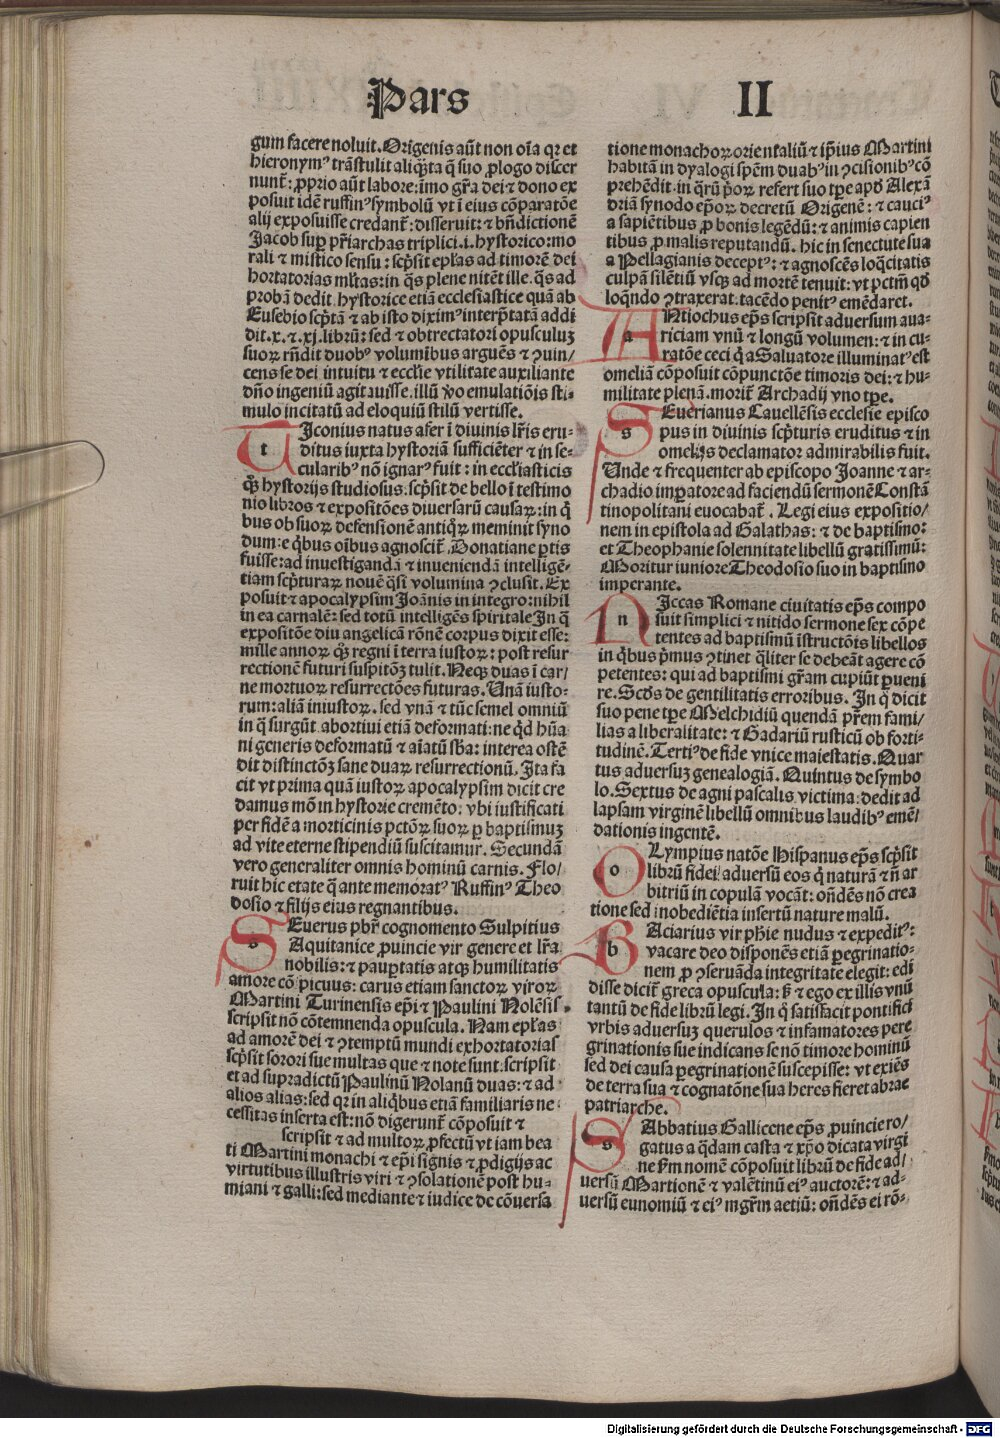 Pars
II
gum facere noluit. Origenis aūt non oīa qꝛ et
hieronymꝰ trāstulit aliq̄ta q̄ suo ꝓlogo discer
nunt̄: ꝓprio aūt labore: īmo gr̄a dei ⁊ dono ex
posuit idē ruffinꝰ symbolū vt ī eius cōparatōe
alij exposuisse credant̄: disseruit: ⁊ bn̄dictionē
Jacob suꝑ pr̄iarchas triplici .i. hystorico: mo
rali ⁊ mistico sensu: scp̄sit ep̄las ad timorē dei
hortatorias ml̄tas: in q̄s plene nitēt ille. q̄s ad
probā dedit. hystorice etiā ecclesiastice quā ab
Eusebio scp̄tā ⁊ ab isto diximꝰ interp̄tatā addi
dit .x. ⁊ .xj. librū: sed ⁊ obtrectatori opusculuꝫ
suoꝝ rn̄dit duobꝰ voluminibus arguēs ⁊ ꝯuin/
cens se dei intuitu ⁊ eccl̄ie vtilitate auxiliante
dn̄o ingeniū agitauisse. illū ꝟo emulatiōis sti-
mulo incitatū ad eloquiū stilū vertisse.
TIconius natus afer ī diuinis lr̄is eru-
ditus iuxta hystoriā sufficiēter ⁊ in se-
cularibꝰ nō ignarꝰ fuit: in eccl̄iasticis
qꝫ hystorijs studiosus. scp̄sit de bello ī testimo
nio libros ⁊ expositōes diuersarū causaꝝ: in q̄
bus ob suoꝝ defensionē antiq̄ꝝ meminit syno
dum: e q̄bus oībus agnoscit̄. Donatiane ꝑtis
fuisse: ad inuestigandā ⁊ inueniendā intelligē-
tiam scp̄turaꝝ nouē q̄si volumina ꝯclusit. Ex
posuit ⁊ apocalypsim Joānis in integro: nihil
in ea carnalē: sed totū intelligēs spiritale In q̄
expositōe diu angelicā rōnē corpus dixit esse:
mille annoꝝ qꝫ regni ī terra iustoꝝ: post resur
rectionē futuri suspitōꝫ tulit. Neqꝫ duas ī car/
ne mortuoꝝ resurrectōes futuras. Vnā iusto-
rum: aliā iniustoꝝ. sed vnā ⁊ tūc semel omniū
in q̄ surgūt abortiui etiā deformati: ne q̄d hūa
ni generis deformatū ⁊ aīatū sb̄a: interea ostē
dit distinctōꝫ sane duaꝝ resurrectionū. Ita fa
cit vt prima quā iustoꝝ apocalypsim dicit cre
damus mō in hystorie cremēto: vbi iustificati
per fidē a morticinis pctōꝝ suoꝝ ꝑ baptismuꝫ
ad vite eterne stipendiū suscitamur. Secundā
vero generaliter omnis hominū carnis. Flo/
ruit hic etate q̄ ante memoratꝰ Ruffinꝰ Theo
dosio ⁊ filijs eius regnantibus.
SEuerus pbr̄ cognomento Sulpitius
Aquitanice ꝓuincie vir genere et lr̄a
nobilis: ⁊ pauꝑtatis atqꝫ humilitatis
amore cōpicuus: carus etiam sanctoꝝ viroꝝ
Martini Turinensis ep̄i ⁊ Paulini Nolēsis
scripsit nō cōtemnenda opuscula. Nam ep̄las
ad amorē dei ⁊ ꝯtemptū mundi exhortatorias
scp̄sit sorori sue multas que ⁊ note sunt. scripsit
et ad supradictū Paulinū Nolanū duas: ⁊ ad
alios alias: sed qꝛ in aliq̄bus etiā familiaris ne
cessitas inserta est: nō digerunt̄ cōposuit ⁊
scripsit ⁊ ad multoꝝ ꝓfectū vt iam bea
ti Martini monachi ⁊ ep̄i signis ⁊ ꝓdigijs ac
virtutibus illustris viri ⁊ ꝯsolationē post hu-
miani ⁊ galli: sed mediante ⁊ iudice de cōuersa
tione monachoꝝ orientaliū ⁊ ip̄ius Martini
habitā in dyalogi spēm duabꝰ in ꝯcisionibꝰ cō
prehēdit. in q̄rū p̄oꝝ refert suo tꝑe apd̄ Alexā
driā synodo ep̄oꝝ decretū Origenē: ⁊ cauciꝰ
a sapiētibus ꝓ bonis legēdū: ⁊ animis capien
tibus ꝓ malis reputandū. hic in senectute sua
a Pellagianis deceptꝰ: ⁊ agnoscēs loq̄citatis
culpā silētiū vsqꝫ ad mortē tenuit: vt pctm̄ qd̄
loq̄ndo ꝯtraxerat. tacēdo penitꝰ emēdaret.
ANtiochus ep̄s scripsit aduersum aua-
riciam vnū ⁊ longū volumen: ⁊ in cu-
ratōe ceci q̄ a Saluatore illuminatꝰ est
omeliā cōposuit cōpunctōe timoris dei: ⁊ hu-
militate plenā. morit̄ Archadij vno tꝑe.
SEuerianus Cauellēsis ecclesie episco
pus in diuinis scp̄turis eruditus ⁊ in
omelijs declamator admirabilis fuit.
Vnde ⁊ frequenter ab episcopo Joanne ⁊ ar-
chadio imꝑatore ad faciendū sermonē Constā
tinopolitani euocabat̄. Legi eius expositio/
nem in epistola ad Galathas: ⁊ de baptismo:
et Theophanie solennitate libellū gratissimū:
Moritur iuniore Theodosio suo in baptismo
imperante.
NIccas Romane ciuitatis ep̄s compo
suit simplici ⁊ nitido sermone sex cōpe
tentes ad baptismū īstructōis libellos
in q̄bus p̄mus ꝯtinet q̄liter se debeāt agere cō
petentes: qui ad baptismi gr̄am cupiūt ꝑueni
re. Scd̄s de gentilitatis erroribus. In q̄ dicit
suo pene tꝑe Melchidiū quendā pr̄em fami/
lias a liberalitate: ⁊ Gadariū rusticū ob forti-
tudinē. Tertiꝰ de fide vnice maiestatis. Quar
tus aduersuꝫ genealogiā. Quintus de symbo
lo. Sextus de agni pascalis victima: dedit ad
lapsam virginē libellū omnibus laudibꝰ emē/
dationis ingentē.
OLympius natōe Hispanus ep̄s scp̄sit
librū fidei: aduersū eos q̄ naturā ⁊ n̄ ar
bitriū in copulā vocāt: on̄dēs nō crea
tione sed inobediētia insertū nature malū.
BAciarius vir ph̄ie nudus ⁊ expeditꝰ:
vacare deo disponēs etiā peregrinatio-
nem ꝓ ꝯseruāda integritate elegit: edi
disse dicit̄ greca opuscula: ꝟ ⁊ ego ex illis vnū
tantū de fide librū legi. In q̄ satisfacit pontifici
vrbis aduersuꝫ querulos ⁊ infamatores pere
grinationis sue indicans se nō timore hominū
sed dei causa peregrinationē suscepisse: vt exiēs
de terra sua ⁊ cognatōne sua heres fieret abrae
patriarche.
SAbbatius Gallicene ep̄s ꝓuincie ro/
gatus a q̄dam casta ⁊ xp̄o dicata virgi
ne p̄m nomē cōposuit librū de fide ad/
uersū Martionē ⁊ valētinū eiꝰ auctorē: ⁊ ad-
uersū eunomiū ⁊ eiꝰ mgr̄m aetiū: on̄dēs ei rō-
Digitalisierung gefördert durch die Deutsche Forschungsgemeinschaft - DFG